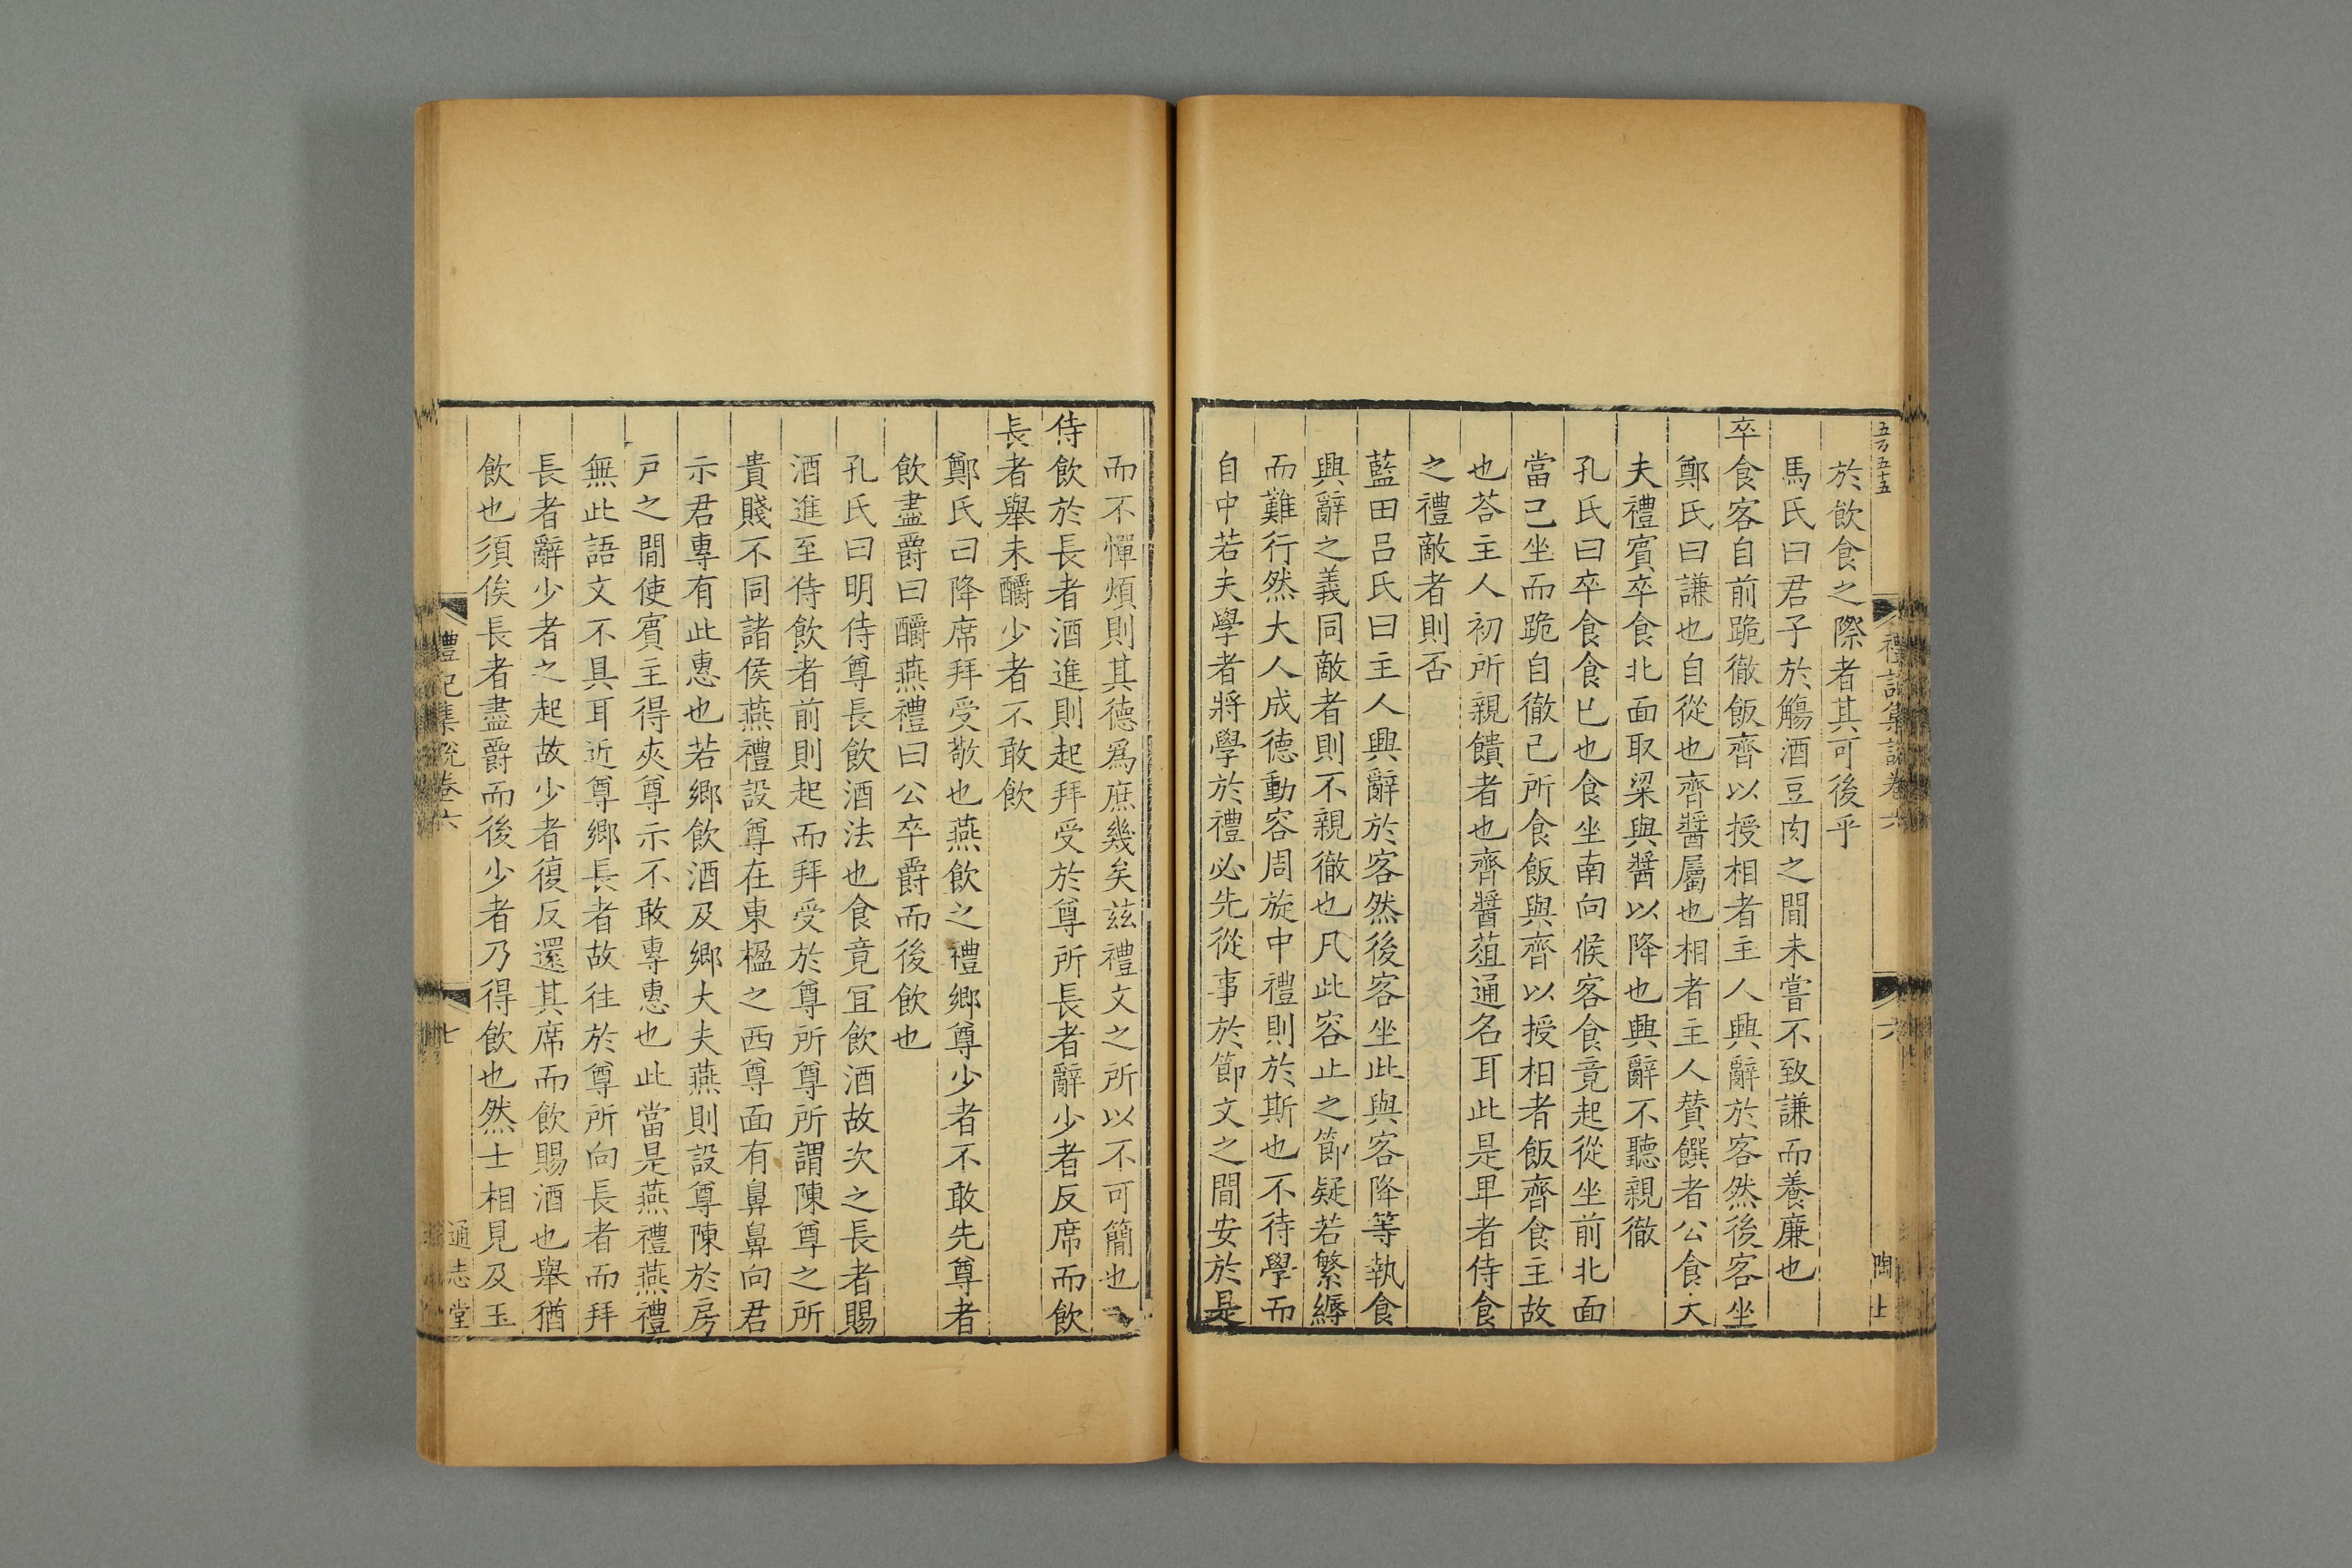 五万五十五
禮記集說卷六
六
陶士
於飲食之際者其可後乎
馬氏曰君子於觴酒豆肉之間未嘗不致謙而養廉也
卒食客自前跪徹飯齊以授相者主人興辭於客然後客坐
鄭氏曰謙也自從也齊醬屬也相者主人贊饌者公食大
夫禮賓卒食北面取粱與醬以降也興辭不聽親徹
孔氏曰卒食食已也食坐南向候客食竟起從坐前北面
當己坐而跪自徹己所食飯與齊以授相者飯齊食主故
也荅主人初所親饋者也齊醬葅通名耳此是卑者侍食
之禮敵者則否
藍田呂氏曰主人興辭於客然後客坐此與客降等執食
興辭之義同敵者則不親徹也凡此容止之節疑若繁縟
而難行然大人成德動容周旋中禮則於斯也不待學而
自中若夫學者將學於禮必先從事於節文之間安於是
而不憚煩則其德爲庶幾矣茲禮文之所以不可簡也
侍飲於長者酒進則起拜受於尊所長者辭少者反席而飲
長者舉未釂少者不敢飲
鄭氏曰降席拜受敬也燕飲之禮鄉尊少者不敢先尊者
飲盡爵曰釂燕禮曰公卒爵而後飲也
孔氏曰明侍尊長飲酒法也食竟宜飲酒故次之長者賜
酒進至侍飲者前則起而拜受於尊所尊所謂陳尊之所
貴賤不同諸侯燕禮設尊在東楹之西尊面有鼻鼻向君
示君專有此惠也若鄉飲酒及鄉大夫燕則設尊陳於房
戸之間使賓主得夾尊示不敢專惠也此當是燕禮燕禮
無此語文不具耳近尊鄉長者故往於尊所向長者而拜
長者辭少者之起故少者復反還其席而飲賜酒也舉猶
飲也須俟長者盡爵而後少者乃得飲也然士相見及玉
禮記集說卷六
七
通志堂